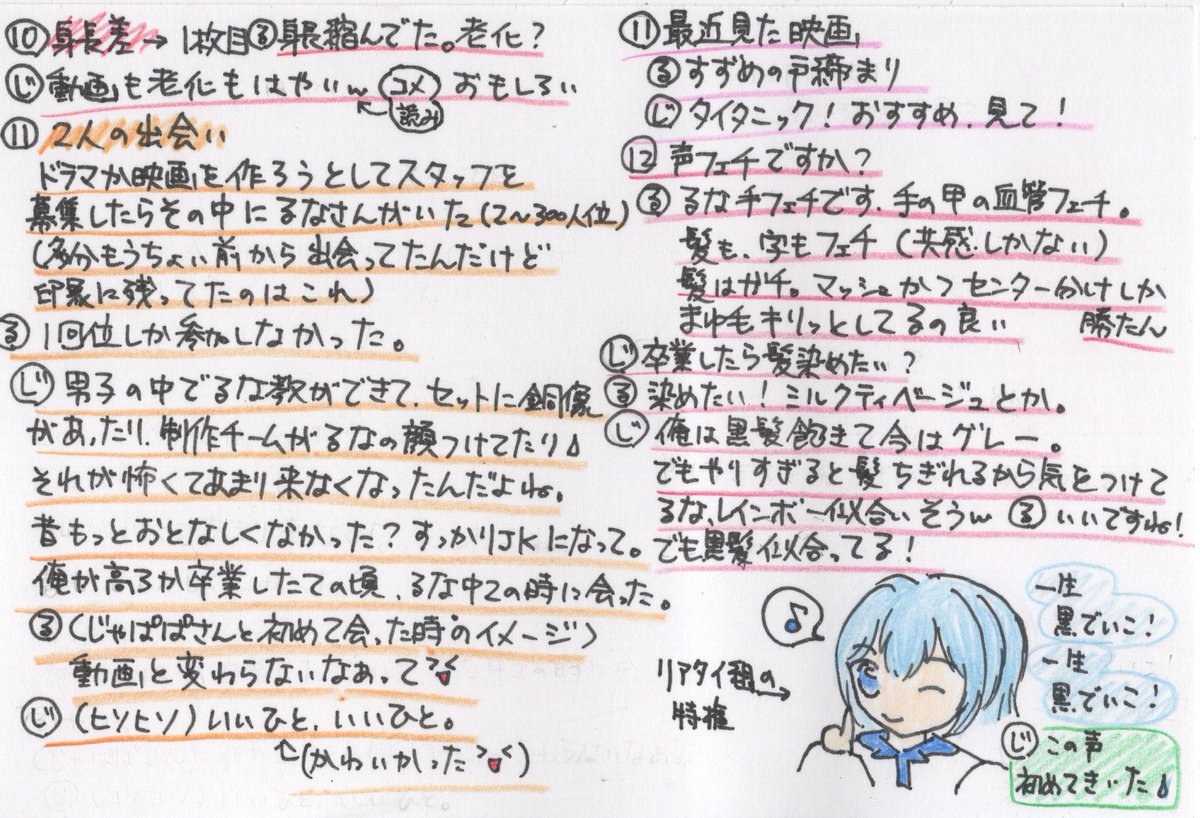 ⑩ 身長差→1枚目 る 身長縮んでた。老化?
じ 動画も老化もはやいw ← コメ読み おもしろい
⑪ 2人の出会い
ドラマか映画を作ろうとしてスタッフを
募集したらその中にるなさんがいた(2~300人位)
(多分もうちょい前から出会ってたんだけど
印象に残ってたのはこれ)
る 1回位しか参加しなかった。
じ 男子の中でるな教ができて、セットに銅像
があったり、制作チームがるなの顔つけてたり
それが怖くてあまり来なくなったんだよね。
昔もっとおとなしくなかった?すっかりJKになって。
俺が高3か卒業したての頃、るな中2の時に会った。
る (じゃぱぱさんと初めて会った時のイメージ)
動画と変わらないなぁって
じ (ヒソヒソ)いいひと、いいひと。
(かわいかった)
⑪ 最近見た映画
る すずめの戸締まり
じ タイタニック!おすすめ、見て!
⑫ 声フェチですか?
る るな手フェチです、手の甲の血管フェチ。
髪も、字もフェチ(共感しかない)
髪はガチ。マッシュかつセンター分けしか
勝たん
まゆ毛キリッとしてるの良い
じ 卒業したら髪染めたい?
る 染めたい!ミルクティベージュとか。
じ 俺は黒髪飽きて今はグレー。
でもやりすぎると髪ちぎれるから気をつけて
るな、レインボー似合いそうw る いいですね!
でも黒髪似合ってる!
♪
リアタイ組の
特権
一生
黒でいこ!
一生
黒でいこ!
じ この声
初めてきいた